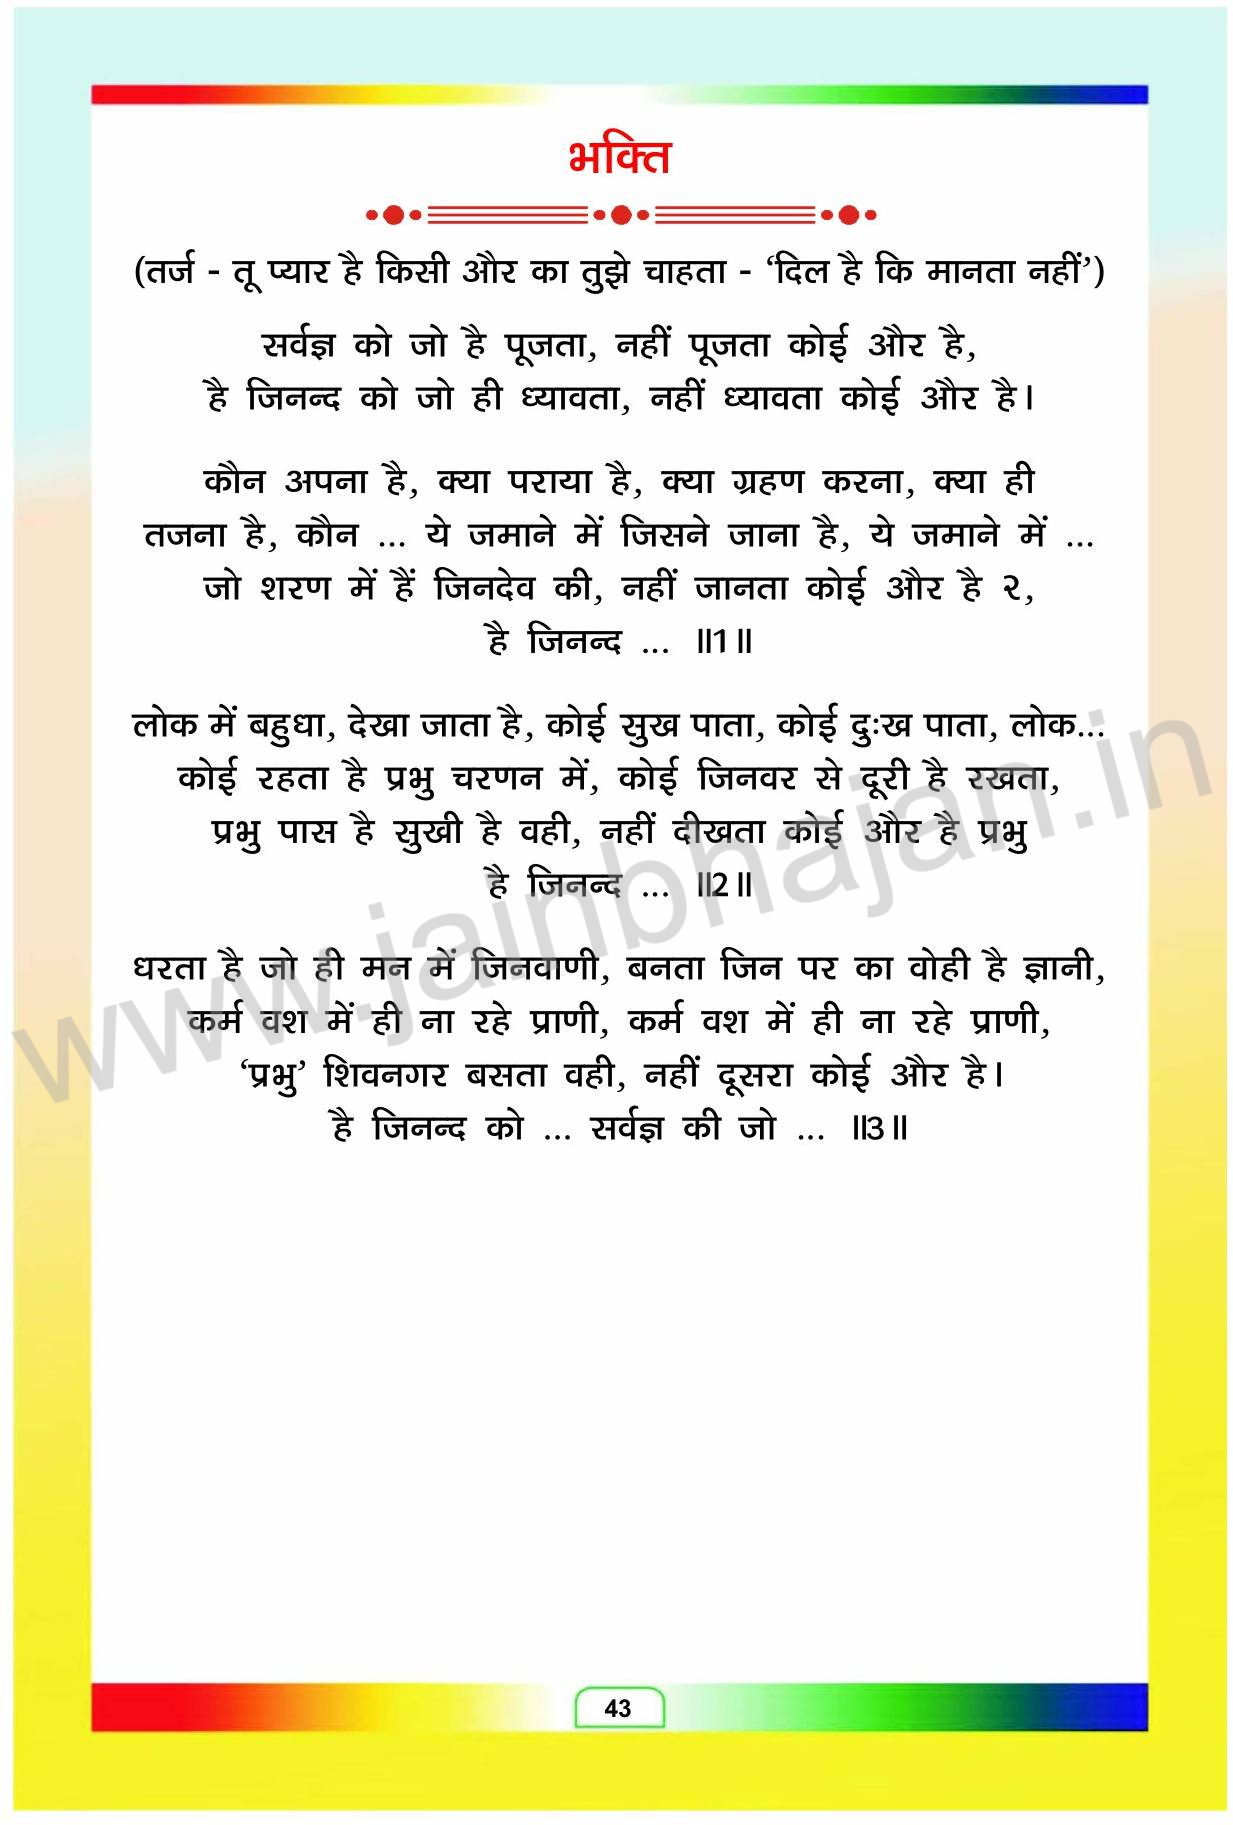 भक्ति
(तर्ज - तू प्यार है किसी और का तुझे चाहता - ‘दिल है कि मानता नहीं’)
सर्वज्ञ को जो है पूजता, नहीं पूजता कोई और है,
है जिनन्द को जो ही ध्यावता, नहीं ध्यावता कोई और है।
कौन अपना है, क्या पराया है, क्या ग्रहण करना, क्या ही
तजना है, कौन ... ये जमाने में जिसने जाना है, ये जमाने में ...
जो शरण में हैं जिनदेव की, नहीं जानता कोई और है २,
है जिनन्द ... ॥1॥
लोक में बहुधा, देखा जाता है, कोई सुख पाता, कोई दुःख पाता, लोक...
कोई रहता है प्रभु चरणन में, कोई जिनवर से दूरी है रखता,
प्रभु पास है सुखी है वही, नहीं दीखता कोई और है प्रभु
है जिनन्द ... ॥2॥
धरता है जो ही मन में जिनवाणी, बनता जिन पर का वोही है ज्ञानी,
कर्म वश में ही ना रहे प्राणी, कर्म वश में ही ना रहे प्राणी,
‘प्रभु’ शिवनगर बसता वही, नहीं दूसरा कोई और है।
है जिनन्द को ... सर्वज्ञ की जो ... ॥3॥
www.jainbhajan.in
43